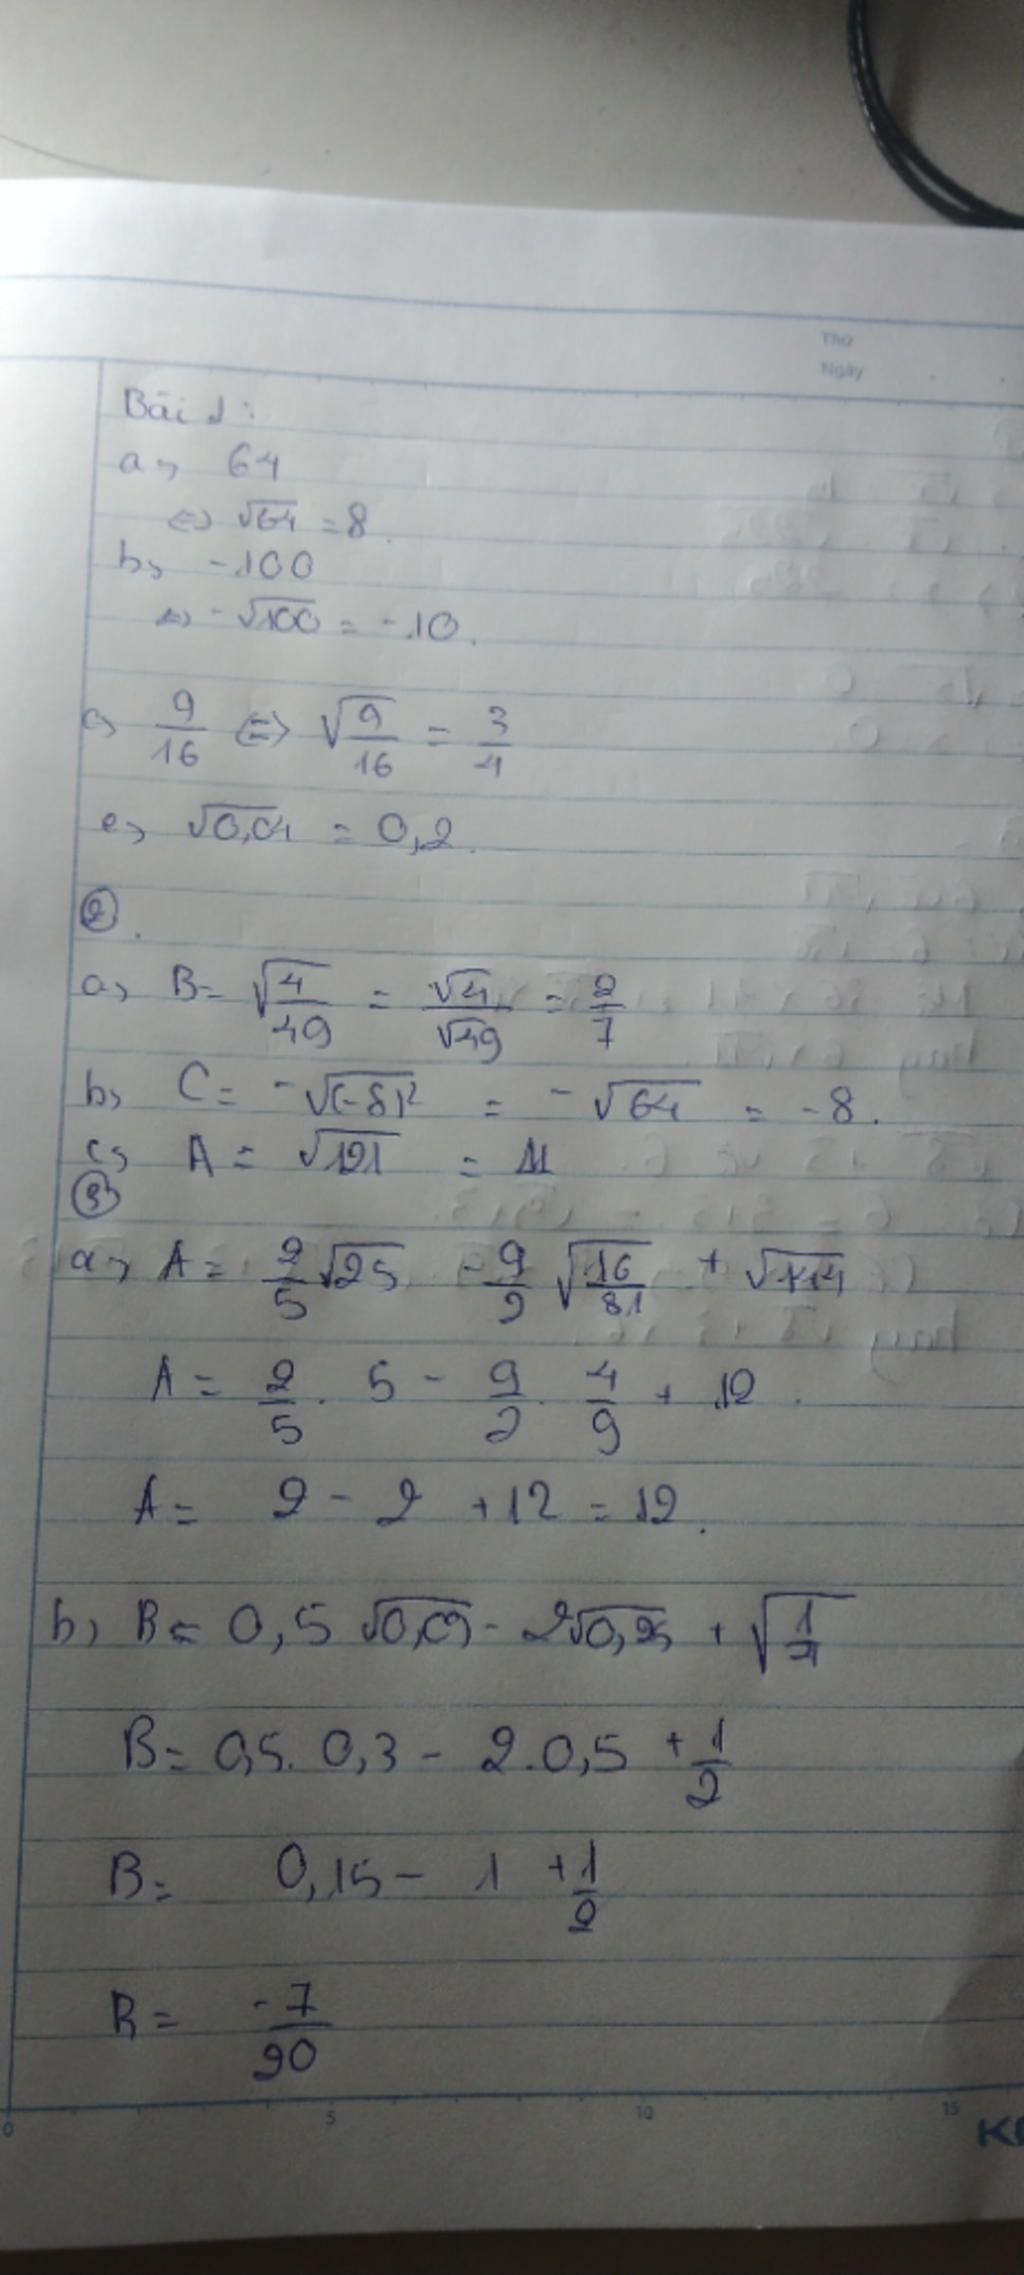 Thứ
Ngày
Bài 1:
a, 64
<=> √64 = 8.
b, -100
<=> -√100 = -10.
c, 9/16 <=> √(9/16) = 3/4
e, √0,04 = 0,2.
②.
a, B = √(4/49) = √4/√49 = 2/7
b, C = -√(-8)² = -√64 = -8.
c, A = √121 = 11
③
a, A = 2/5 √25 - 9/2 √(16/81) + √144
A = 2/5 . 5 - 9/2 . 4/9 + 12.
A = 2 - 2 + 12 = 12.
b, B = 0,5 √0,09 - 2√0,25 + √(1/4)
B = 0,5 . 0,3 - 2 . 0,5 + 1/2
B = 0,15 - 1 + 1/2
B = -7/20
0 5 10 15